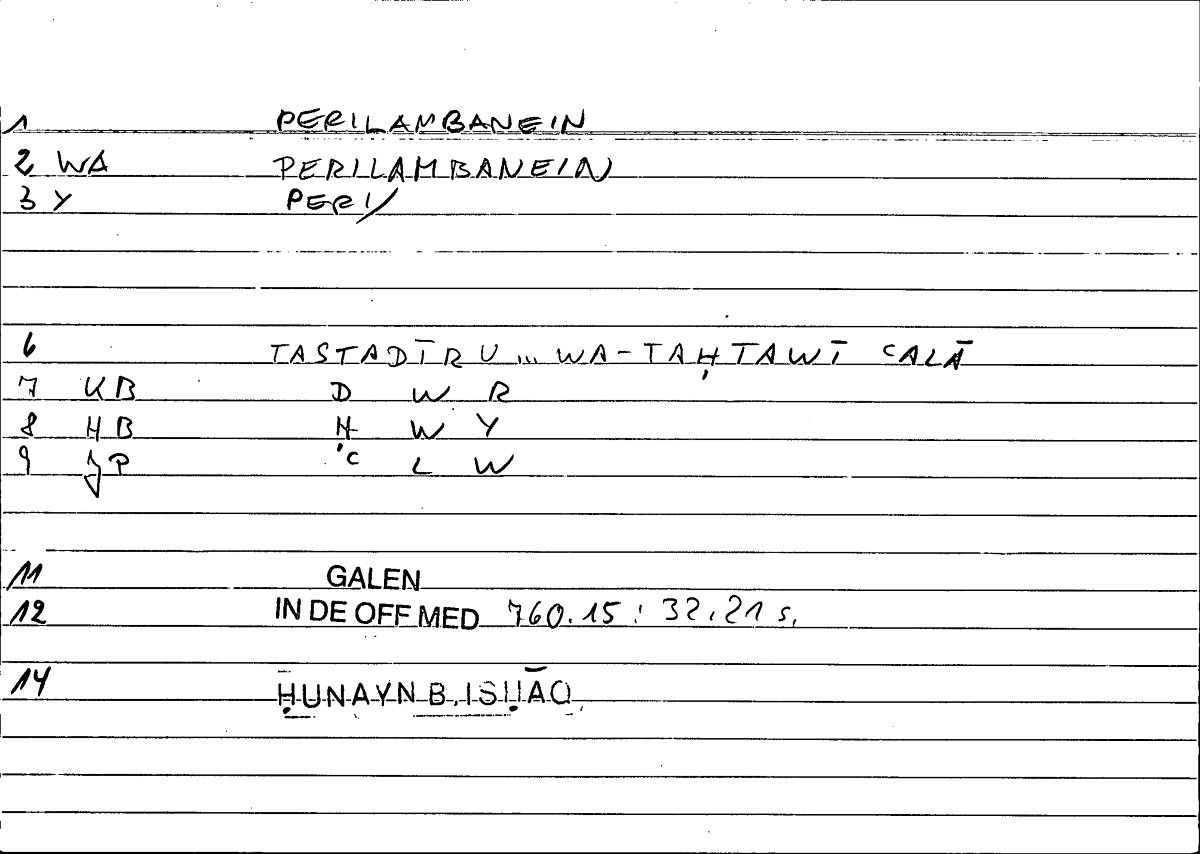 1 PERILAMBANEIN
2 WA PERILAMBANEIN
3 Y PERI/
6 TASTADĪRU ... WA-TAḤTAWĪ ʿALĀ
7 KB D W R
8 HB Ḥ W Y
9 JP ʿC L W
11 GALEN
12 IN DE OFF MED 760.15 : 32.21 s.
14 ḤUNAYN B. ISḤĀQ